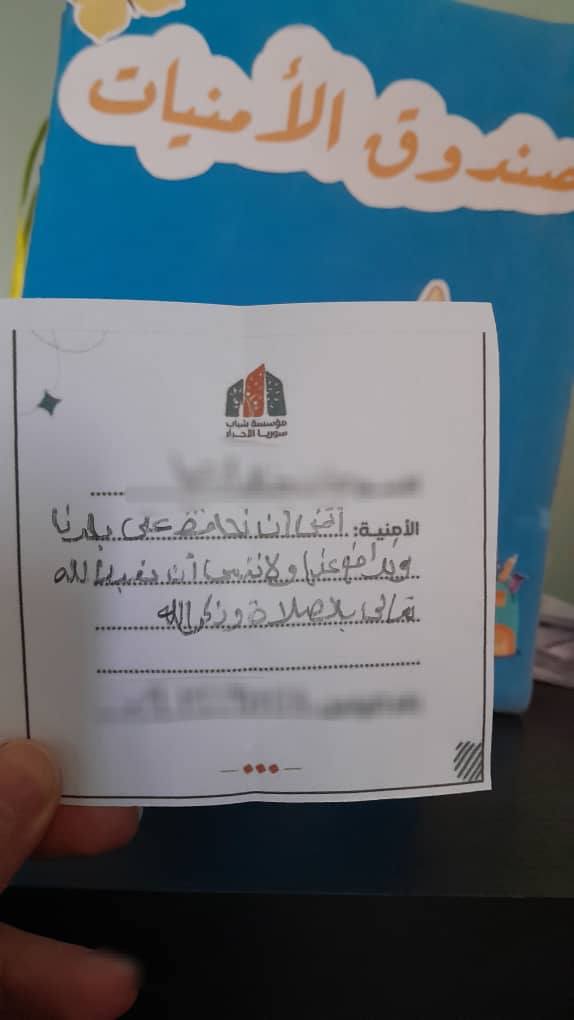 صندوق الأمنيات
مؤسسة شباب
سوريا الأحرار
الأمنية: أتمنى أن نحافظ على بلدنا
وندافع عنها ولا ننسا أن نعبد الله
تعالى بلاصلاة وذكر الله